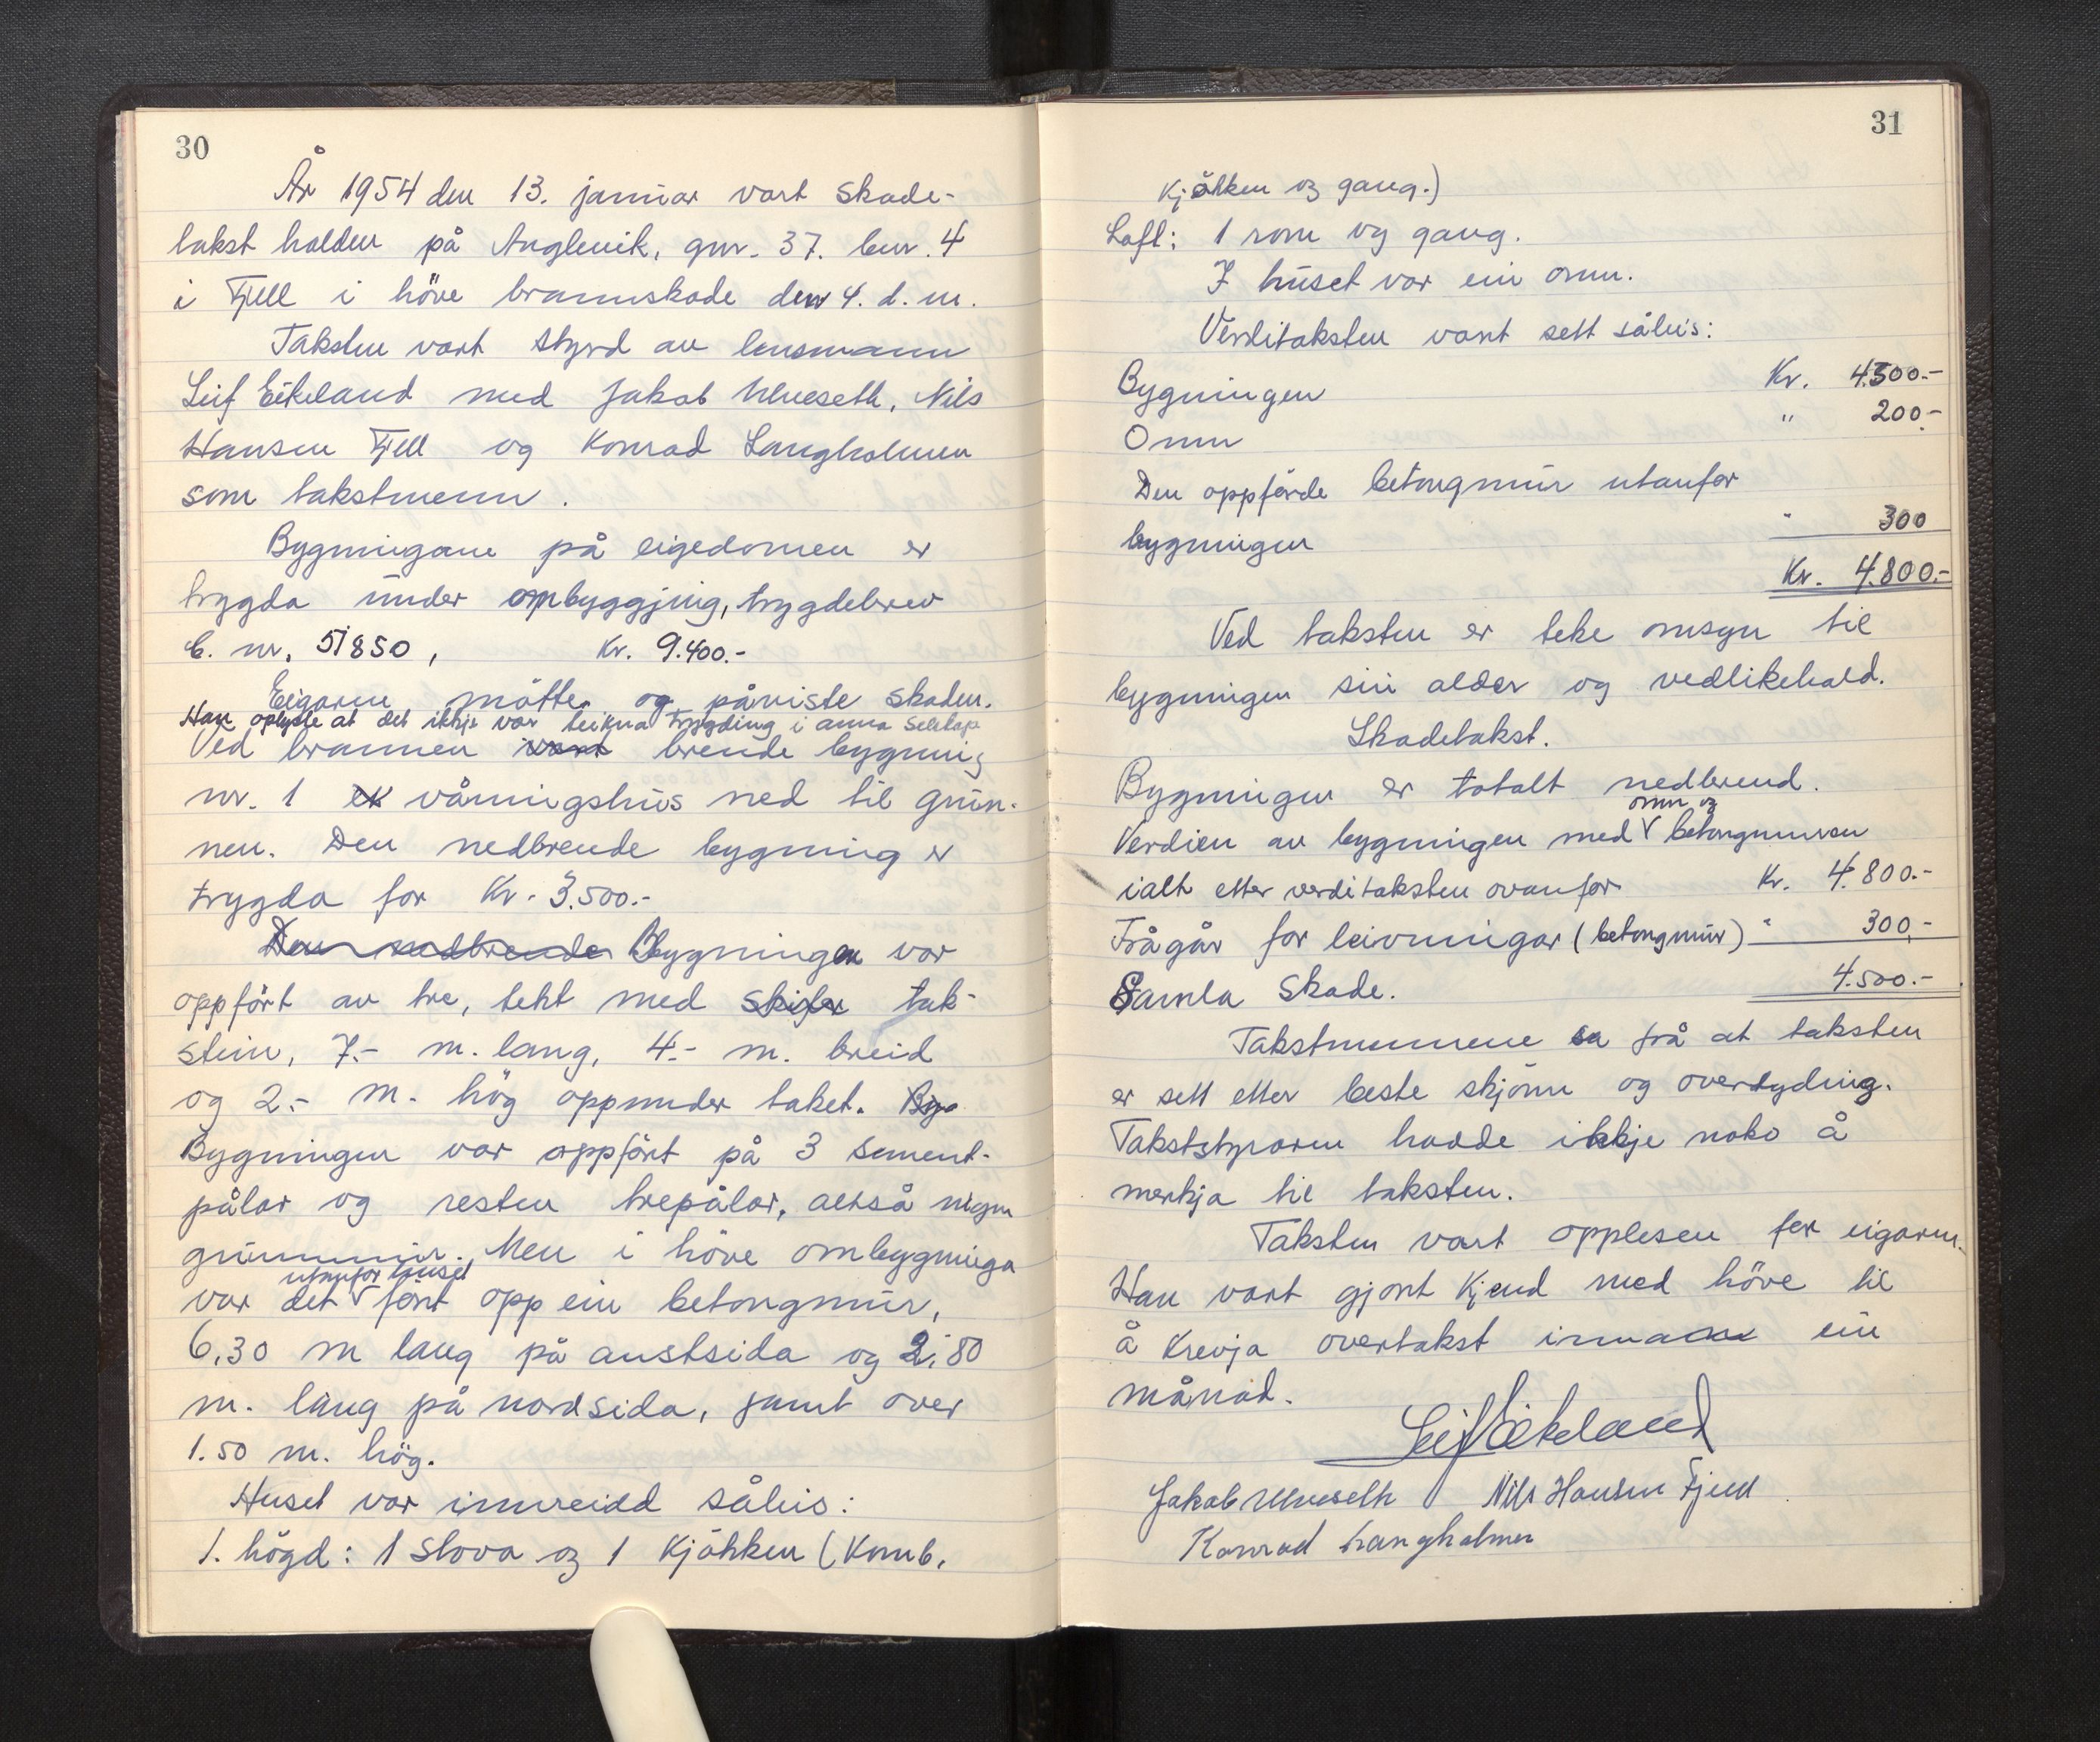 30
År 1954 den 13. januar vart skade-
takst halden på Anglevik, gnr. 37. bnr. 4
i Fjell i höve brannskade den 4. d. m.
Taksten vart styrd av lensmann
Leif Eikeland med Jakob Ulveseth, Nils
Hansen Fjell og Konrad Langholmen
som takstmenn.
Bygningane på eigedomen er
trygda under ombyggjing, trygdebrev
C. nr. 51850, Kr. 9.400.-
Eigaren mötte og påviste skaden.
Han oplyste at det ikkje var teikna trygding i anna selskap
Ved brannen vart brende bygning
nr. 1 våningshus ned til grun-
nen. Den nedbrende bygning er
trygda for Kr. 3.500.-
Den nedbrende Bygningen var
oppfört av tre, tekt med skifer tak-
stein, 7.- m. lang, 4.- m. breid
og 2.- m. hög oppunder taket. Byg
Bygningen var oppfört på 3 sement-
pålar og resten trepålar, altså ingen
grunnmur. Men i höve ombygninga
utanfor huset
var det V fört opp ein betongmur,
6,30 m lang på austsida og 2,80
m. lang på nordsida, samt over
1.50 m. hög.
Huset var innreidd såleis:
1. högd: 1 stova og 1 kjökken (Komb.
31
kjökken og gang.)
Loft: 1 rom og gang.
I huset var ein omn.
Verditaksten vart sett såleis:
Bygningen Kr. 4300.-
Omn " 200.-
Den oppförde betongmur utanfor
bygningen " 300
Kr. 4.800.-
Ved taksten er teke omsyn til
bygningen sin alder og vedlikehald.
Skadetakst.
Bygningen er totalt nedbrend.
omn og
Verdien av bygningen med V betongmuren
ialt etter verditaksten ovanfor Kr. 4.800.-
Frågår for leivningar (betongmur) " 300,-
Samla skade. 4.500.-
Takstmennene sa frå at taksten
er sett etter beste skjönn og overtyding.
Takststyraren hadde ikkje noko å
merkja til taksten.
Taksten vart opplesen for eigaren.
Han vart gjort kjend med höve til
å krevja overtakst innan ein
månad.
Leif Eikeland
Jakob Ulveseth Nils Hansen Fjell
Konrad Langholmen